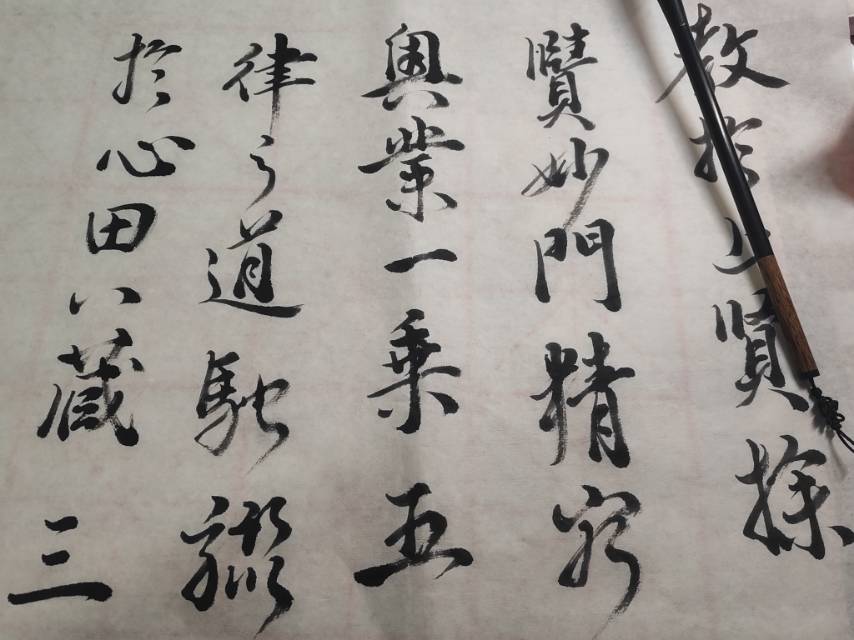 教於上賢探
賾妙門精窮
奧業一乘五
律之道馳驟
於心田八藏三